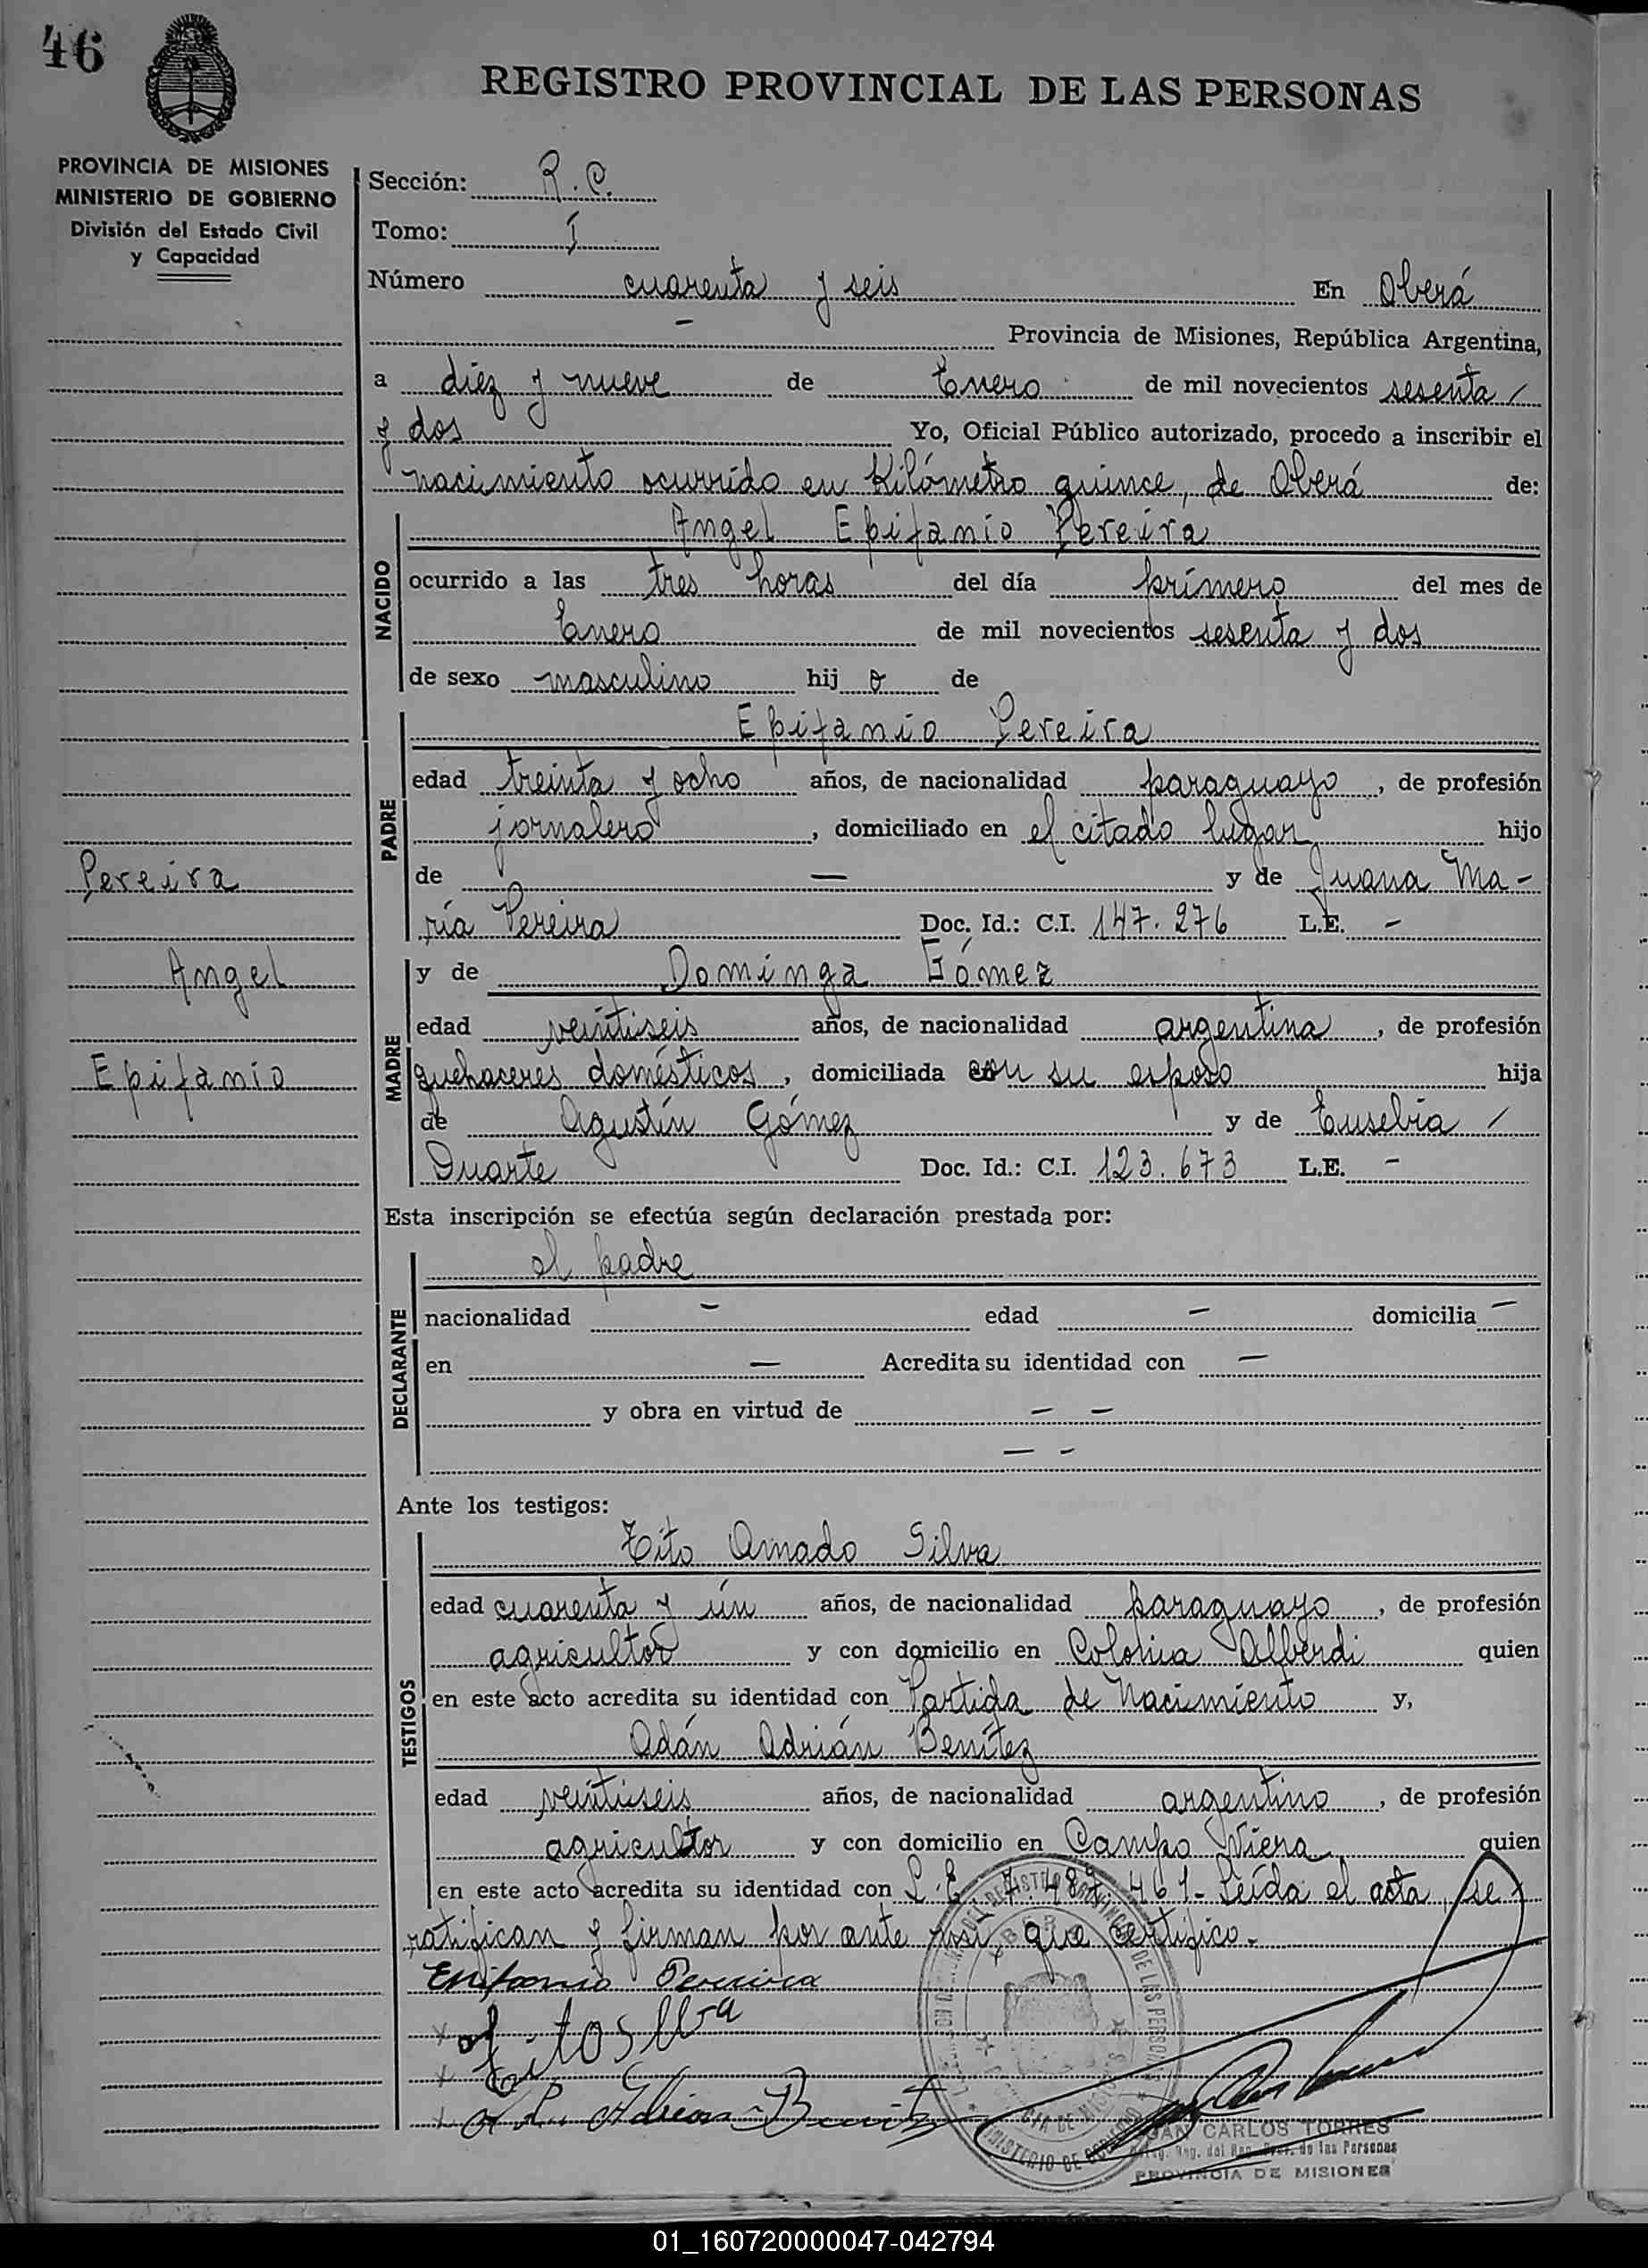 46
REGISTRO PROVINCIAL DE LAS PERSONAS
PROVINCIA DE MISIONES
MINISTERIO DE GOBIERNO
División del Estado Civil
y Capacidad
Sección: R. C.
Tomo: I
Número cuarenta y seis En Oberá
— Provincia de Misiones, República Argentina,
a diez y nueve de Enero de mil novecientos sesenta /
y dos Yo, Oficial Público autorizado, procedo a inscribir el
nacimiento ocurrido en Kilómetro quince, de Oberá de:
NACIDO
Angel Epifanio Pereira
ocurrido a las tres horas del día primero del mes de
Enero de mil novecientos sesenta y dos
de sexo masculino hij o de
PADRE
Epifanio Pereira
edad treinta y ocho años, de nacionalidad paraguayo, de profesión
jornalero, domiciliado en el citado lugar hijo
de — y de Juana Ma-
ría Pereira Doc. Id.: C.I. 147.276 L.E. -
Pereira
Angel
Epifanio
MADRE
y de Dominga Gómez
edad veintiseis años, de nacionalidad argentina, de profesión
quehaceres domésticos, domiciliada con su esposo hija
de Agustín Gómez y de Eusebia /
Duarte Doc. Id.: C.I. 123.673 L.E. -
Esta inscripción se efectúa según declaración prestada por:
DECLARANTE
el padre
nacionalidad — edad — domicilia —
en — Acredita su identidad con —
y obra en virtud de — —
— -
Ante los testigos:
TESTIGOS
Tito Amado Silva
edad cuarenta y ún años, de nacionalidad paraguayo, de profesión
agricultor y con domicilio en Colonia Alberdi quien
en este acto acredita su identidad con Partida de Nacimiento y,
Adán Adrián Benítez
edad veintiseis años, de nacionalidad argentino, de profesión
agricultor y con domicilio en Campo Viera quien
en este acto acredita su identidad con L.E. 7.487.461- Leída el acta, se
ratifican y firman por ante mí que certifico.-
Epifanio Pereira
Tito Silva
Adrian Benitez
JUAN CARLOS TORRES
de las Personas
PROVINCIA DE MISIONES
01_160720000047-042794